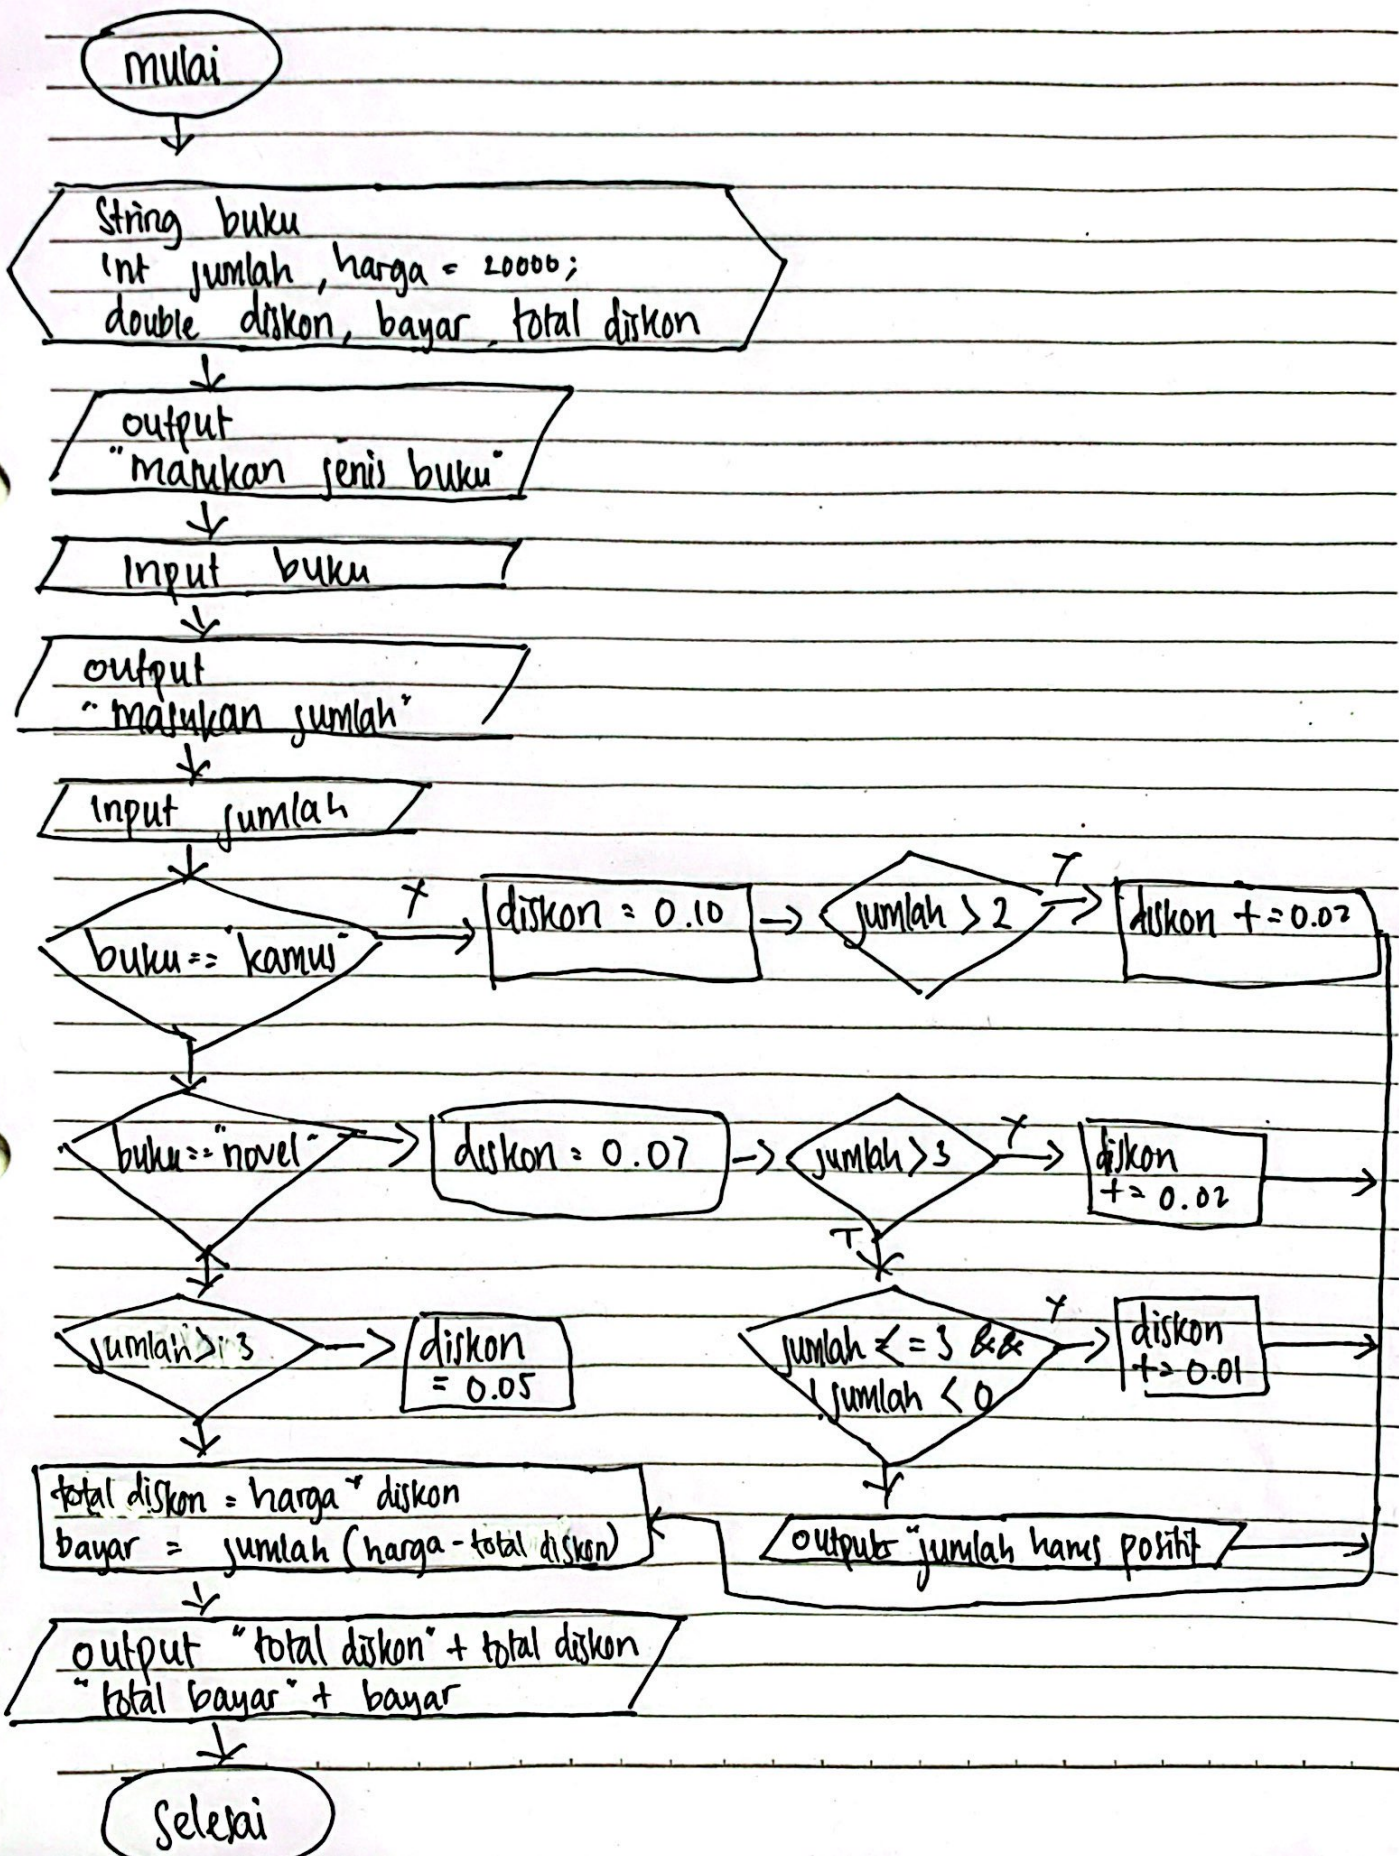 mulai
String buku
int jumlah, harga = 20000;
double diskon, bayar, total diskon
output
"masukan jenis buku"
Input buku
output
"masukan jumlah"
input jumlah
buku == "kamus"
Y
diskon = 0.10
jumlah > 2
Y
diskon += 0.02
buku == "novel"
diskon = 0.07
jumlah > 3
Y
diskon
+= 0.02
T
jumlah > 3
diskon
= 0.05
jumlah <= 3 &&
jumlah < 0
Y
diskon
+= 0.01
total diskon = harga * diskon
bayar = jumlah (harga - total diskon)
output "jumlah harus positif
output "total diskon" + total diskon
"total bayar" + bayar
Selesai